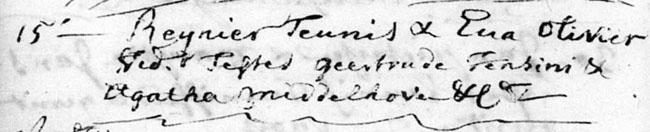 15 — Reynier Teunis & Eua Olivier
Ged. Testes geertrude Tensini &
Agatha Middelhove &C